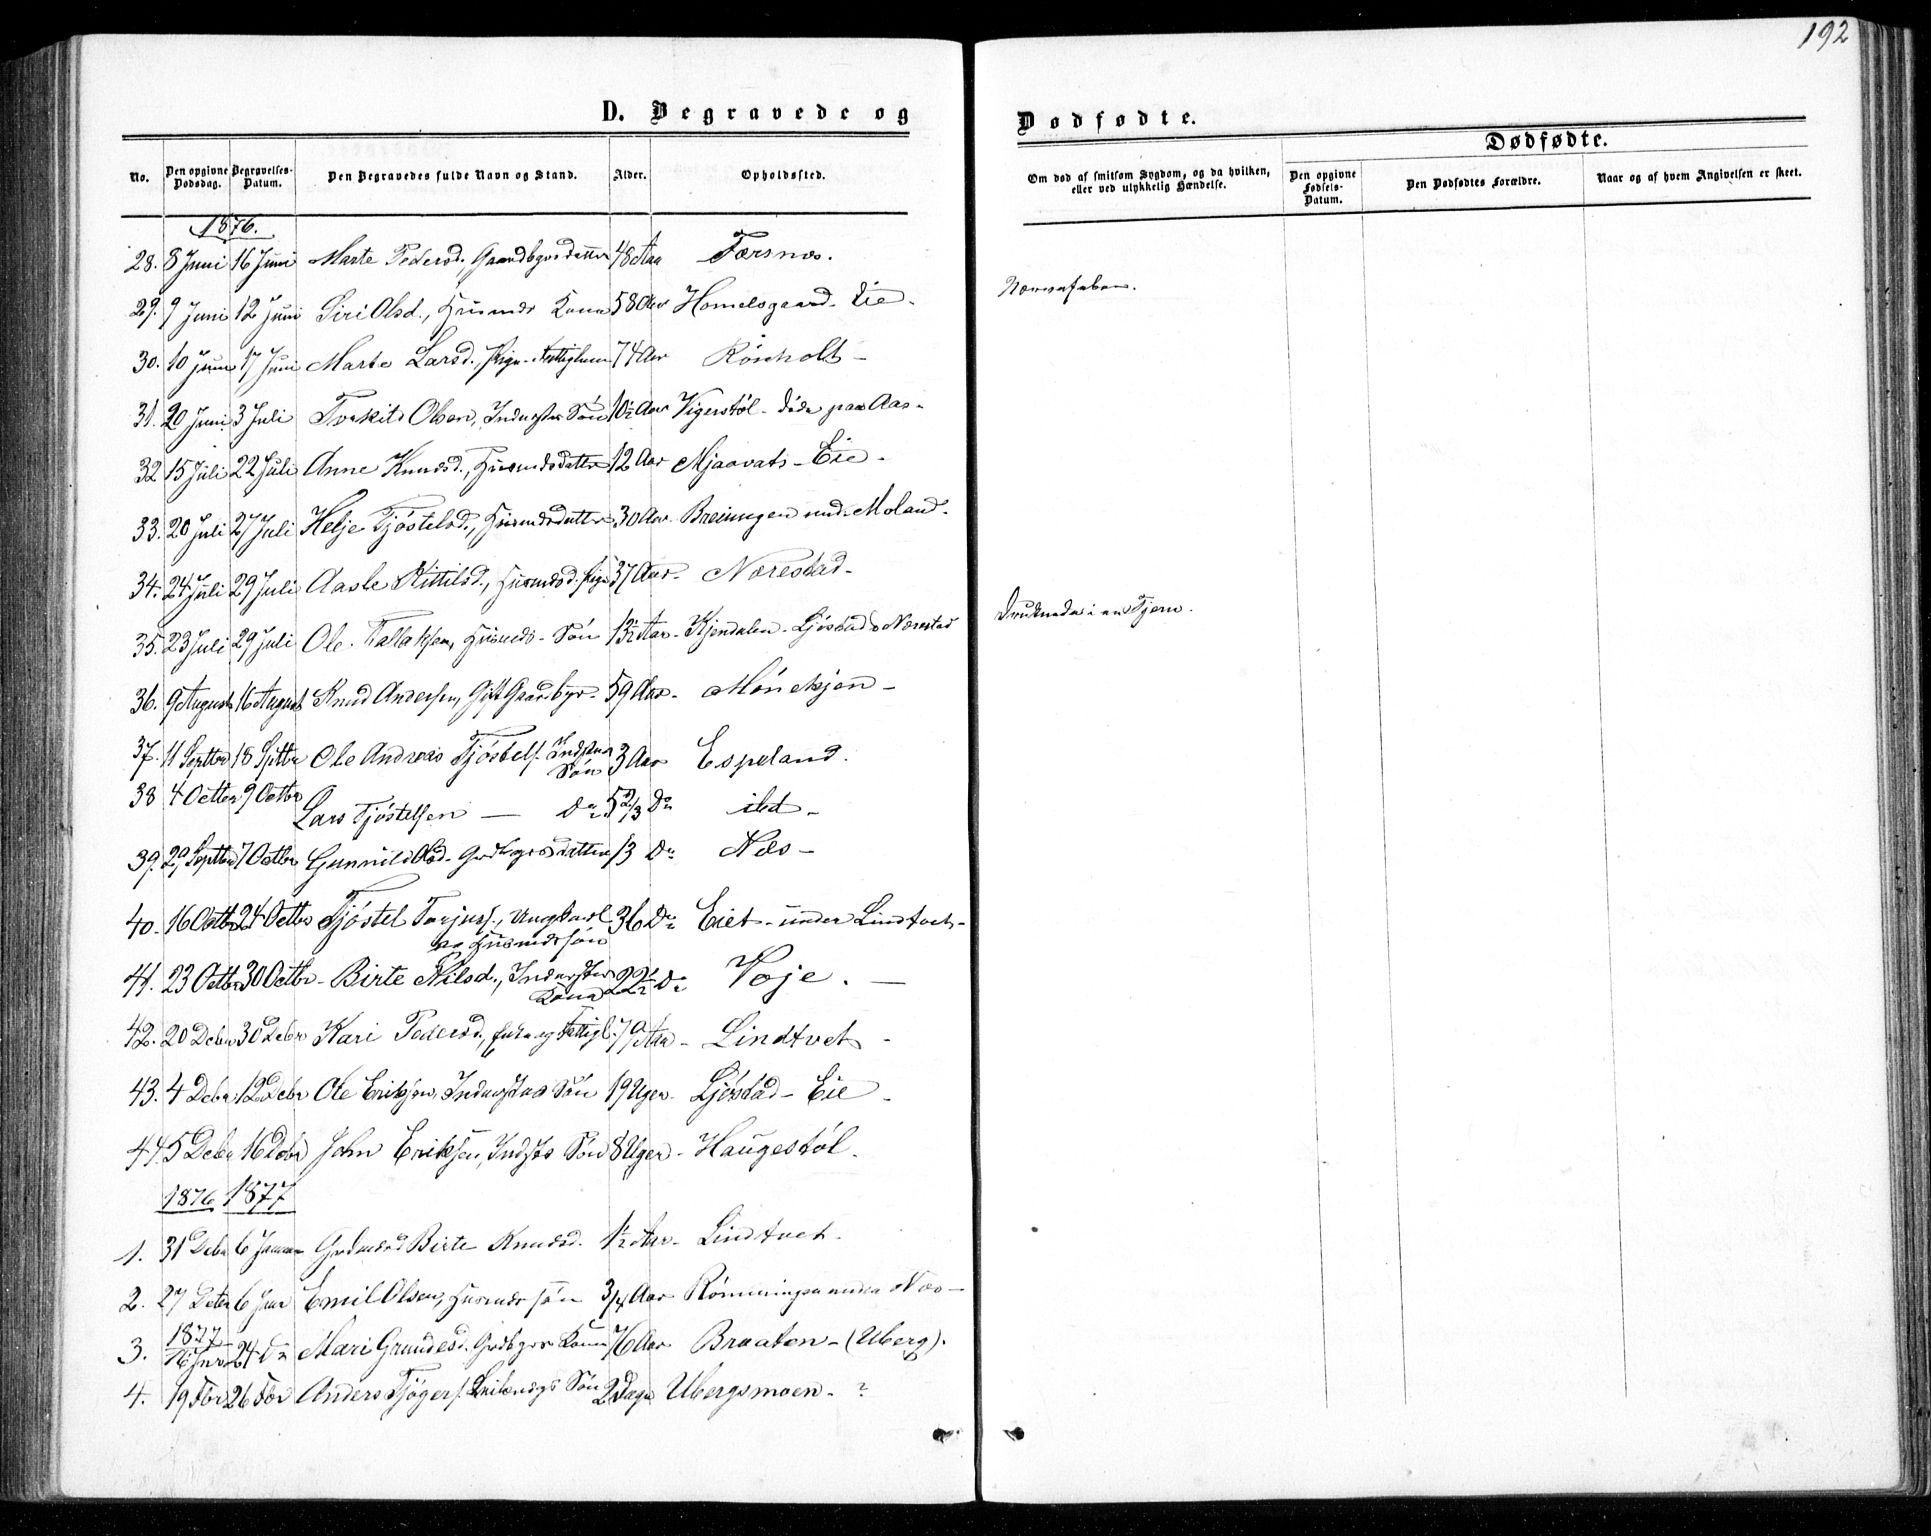 192
D. Begravede og
Dødfødte.
No. Den opgivne Dødsdag. Begravelses-Datum. Den Begravedes fulde Navn og Stand. Alder. Opholdssted.
Om død af smitsom Sygdom, og da hvilken, eller ved ulykkelig Hændelse.
Dødfødte.
Den opgivne Fødsels-Datum. Den Dødfødtes Forældre. Naar og af hvem Angivelsen er skeet.
1876.
28. 8 Juni 16 Juni Marte Pedersd., 48 Aar Færsnæs.
29. 9 Juni 12 Juni Siri Olsd., Husmds Kone 58 Aar Homelsgaard-Eie. Nervefeber.
30. 10 Juni 17 Juni Marte Larsd., Pige 74 Aar Rönholt-
31. 20 Juni 3 Juli Torkild Olsen, Inderster Søn 10½ Aar Vigerstöl - døde paa Aas-
32 15 Juli 22 Juli Anne Knudsd., Husmdsdatter 12 Aar Mjaavats-Eie-
33. 20 Juli 27 Juli Helje Tjöstelsd., Husmdsdatter 30 Aar Breiungen und. Moland-
34. 24 Juli 29 Juli Aaste Kittilsd., Husmdsd. Pige 37 Aar- Nærestad-
35. 23 Juli 29 Juli Ole Tallaksen, Husmds-Søn 13½ Aar- Kjendalen-Ljöstad o Nærestad Druknede i en Tjern.
36. 9 August 16 August Knud Andersen, Gift Gaardbgr. 59 Aar- Mönekjen-
37. 11 Septbr 18 Septbr Ole Andreas Tjöstels. Indstes Søn 3 Aar Espeland.
38 4 Octbr 9 Octbr Lars Tjöstelsen — Do 5 2/3 Do ibd-
39. 29 Septbr 7 Octbr Gunnild Olsd- Grdbgrsdatter 13 Do Næs-
40. 16 Octbr 24 Octbr Tjöstel Torjuss., Ungkarl og Husmdssøn 36 Do Eiet-under Lindtvet-
41. 23 Octbr 30 Octbr- Birte Nilsd., Inderstes Kone 22½ Do Voje. —
42. 20 Debr 30 Debr Kari Pedersd., Enke og Fattigl. 79 Aar- Lindtvet-
43. 4 Debr 12 Debr Ole Eriksen, Inderstes Søn 19 Uger- Ljöstad-Eie-
44. 5 Debr 16 Debr John Eriksen, Indsts Søn 8 Uger- Haugestöl.
1876 1877
1. 31 Debr 6 Januar Birte Knudsd. 1½ Aar- Lindtvet.
2. 27 Debr 6 Janr Emil Olsen, Husmds søn 3/4 Aar Rönningen under Næs-
3. 1877 16 Janr 24 Do Mari Grundesd. Grdbgrs Kone 76 Aar Braaten-(Uberg).
4. 19 Febr 26 Febr Anders Tjögers. Søn 2 Dage Ubergsmoen- ?